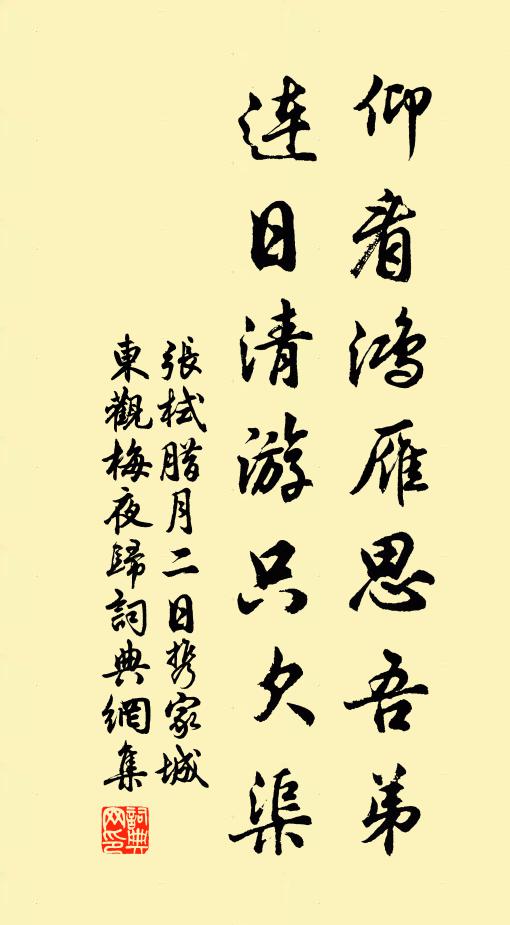 仰看鴻雁思吾弟
連日清游只欠渠
張栻腊月二日携家城
東觀梅夜歸詞典網集
詞典网印